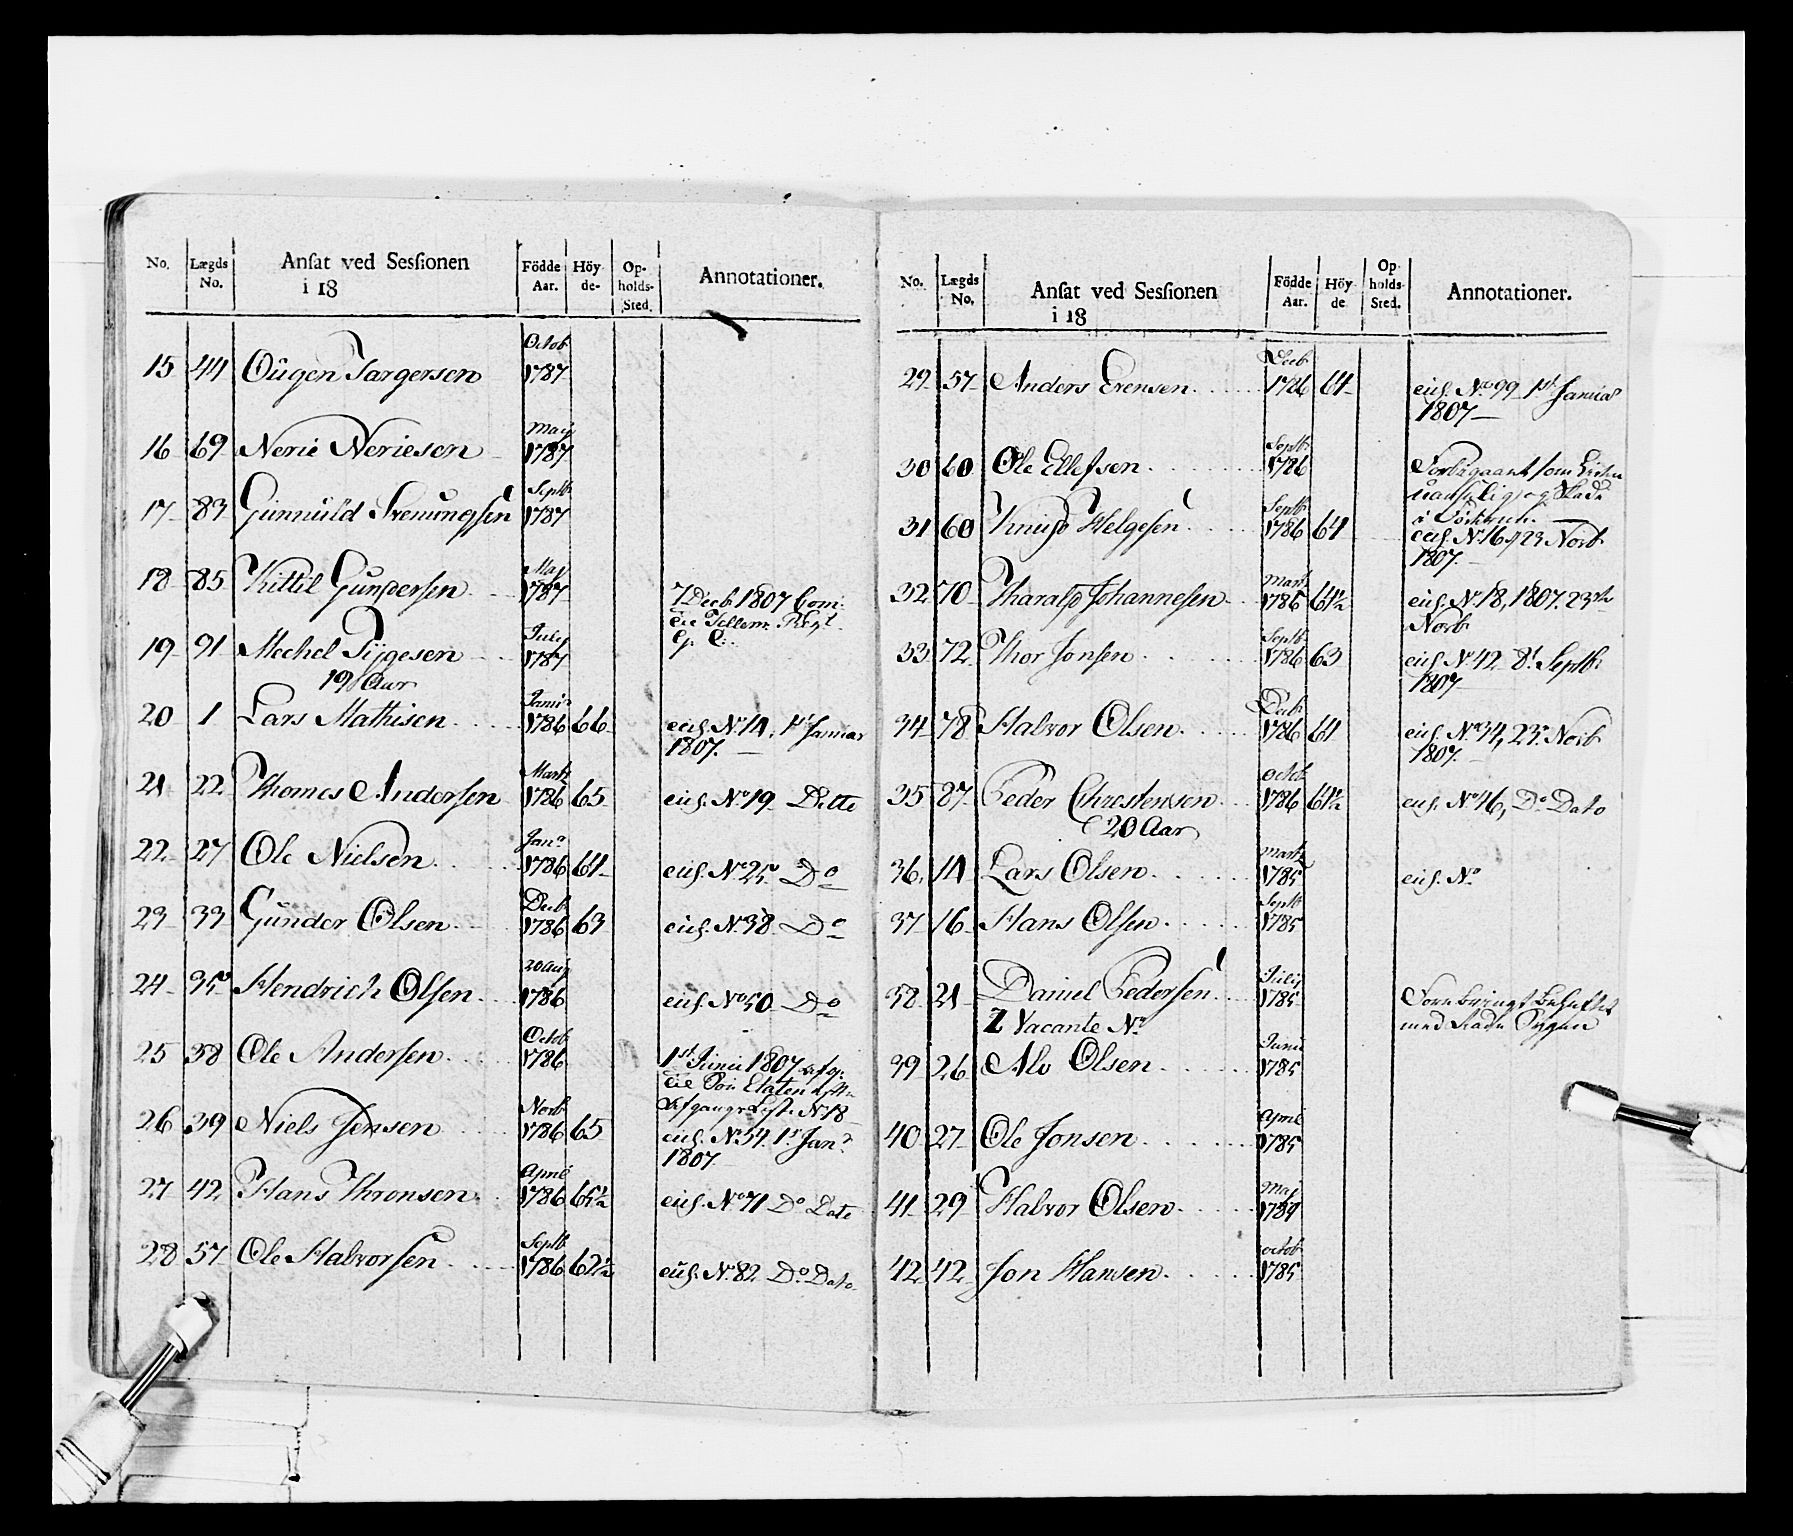 No. Lægds No. Ansat ved Sessionen i 18 Födde Aar. Höy- de- Op- holds- Sted. Annotationer.
15 44 Oügen Targersen Octob 1787
16 69 Nerie Neriesen May 1787
17 83 Gunnüld Svenungsen Septb 1787
18 85 Kittil Gundersen May 1787
7 Decb 1807
19 91 Mechel Tygesen July 1787
19 Aar
20 1 Lars Mathisen Janu 1786 66 eich. No 14, 1st Januar
1807.
21 22 Thomes Andersen Martz 1786 65 eich. No 19 Ditto
22 27 Ole Nielsen Jan 1786 64 eich. No 25 Do
23 33 Günder Olsen Decb 1786 63 eich. No 38 Do
24 35 Hendrich Olsen 20 Aug 1786 eich. No 50 Do
25 38 Ole Andersen Octob 1786 1st Junii 1807
Afgangs Liste No 18
26 39 Niels Jensen Novb 1786 65 eich. No 54. 1st Jan
1807
27 42 Hans Thronsen April 1786 65½ eich. No 71 Do Dato
28 57 Ole Halvorsen Septb 1786 62½ eich. No 82 Do Dato
No. Lægds No. Ansat ved Sessionen i 18 Födde Aar. Höy de Op- holds- Sted. Annotationer.
29 57 Anders Evensen Decb 1786 64 eich. No 99 1st Januar
1807
30 60 Ole Ellefsen Septb 1786
31 60 Knud Helgesen Septb 1786 64 eich. No 16 23 Novb
1807.
32 70 Tharald Johannesen Martz 1786 64½ eich. No 18, 1807. 23de
Novb
33 72 Thor Jonsen Septb 1786 63 eich No 42 8t Septbr
1807
34 78 Halvor Olsen Decb 1786 64 eich. No 34, 23. Novb
1807.
35 87 Peder Chrestensen Octob 1786 64½ eich. No 46, Do Dato
20 Aar
36 14 Lars Olsen Martz 1785 eich. No
37 16 Hans Olsen Septb 1785
38 21 Daniel Pedersen July 1785
2 Vacante No
39 26 Alv Olsen Junii 1785
40 27 Ole Jonsen April 1785
41 29 Halvor Olsen Maj 1784
42 42 Jon Hansen Octob 1785